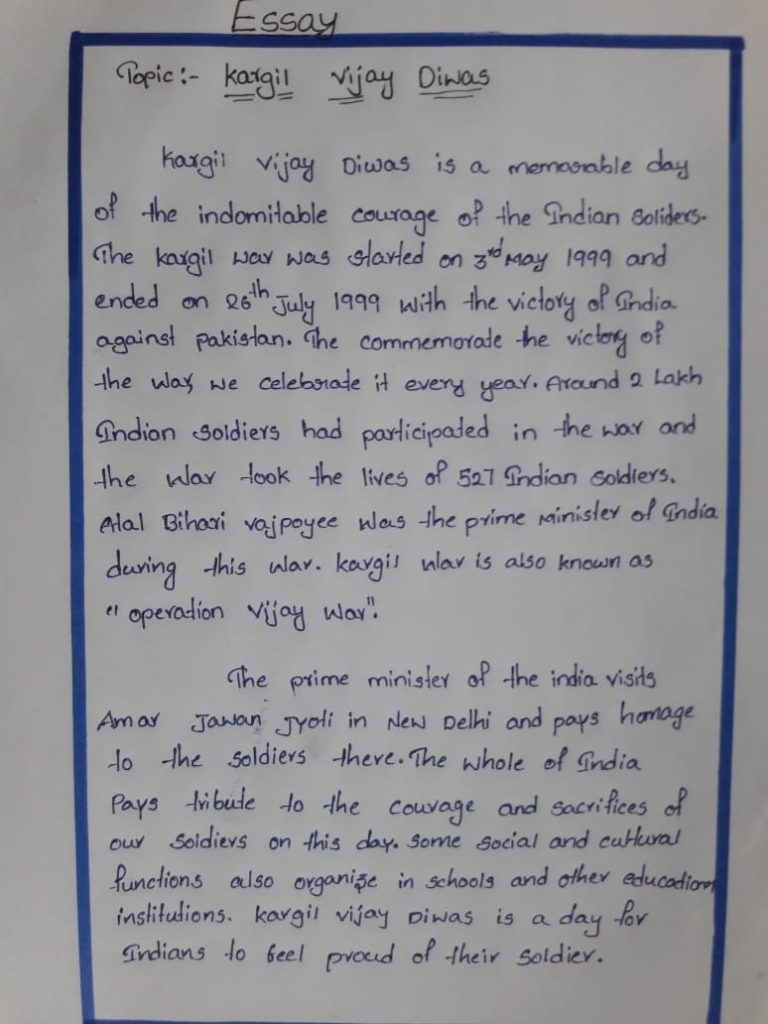 Essay
Topic:- Kargil Vijay Diwas
Kargil Vijay Diwas is a memorable day
of the indomitable courage of the Indian soliders.
The kargil war was started on 3rd May 1999 and
ended on 26th July 1999 with the victory of India
against pakistan. The commemorate the victory of
the war, we celebrate it every year. Around 2 Lakh
Indian soldiers had participated in the war and
the war took the lives of 527 Indian soldiers.
Atal Bihari vajpoyee was the prime minister of India
during this war. kargil war is also known as
" operation Vijay War".
The prime minister of the india visits
Amar Jawan Jyoti in New Delhi and pays homage
to the soldiers there. The whole of India
Pays tribute to the courage and sacrifices of
our soldiers on this day. some social and cultural
functions also organize in schools and other education
institutions. kargil vijay Diwas is a day for
Indians to feel proud of their soldier.